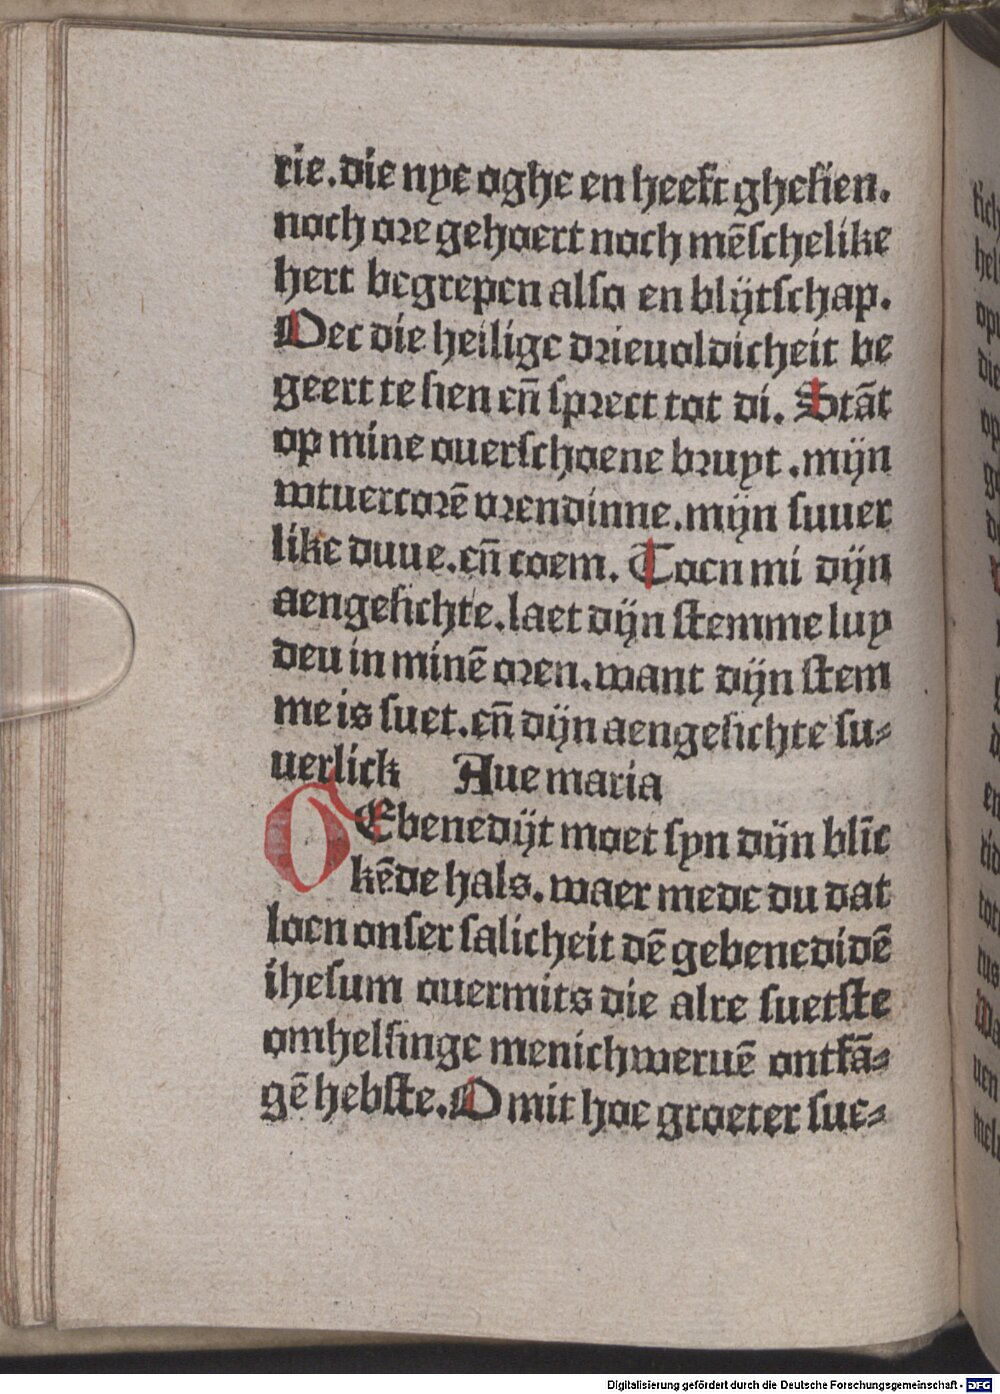 rie. die nye oghe en heeft ghesien.
noch ore gehoert noch mēschelike
hert begrepen also en blijtschap.
Oec die heilige drieuoldicheit be
geert te sien eñ sprect tot di. Stāt
op mine ouerschoene bruyt. mijn
wtuercorē vrendinne. mijn suuer
like duue. eñ coem. Toen mi dijn
aengesichte. laet dijn stemme luy
deu in minē oren. want dijn stem
me is suet. eñ dijn aengesichte su⸗
uerlick Aue maria
GEbenedijt moet syn dijn blīc
kēde hals. waer mede du dat
loen onser salicheit dē gebenedidē
ihesum ouermits die alre suetste
omhelsinge menichweruē ontfā⸗
gē hebste. O mit hoe groeter sue⸗
Digitalisierung gefördert durch die Deutsche Forschungsgemeinschaft - DFG